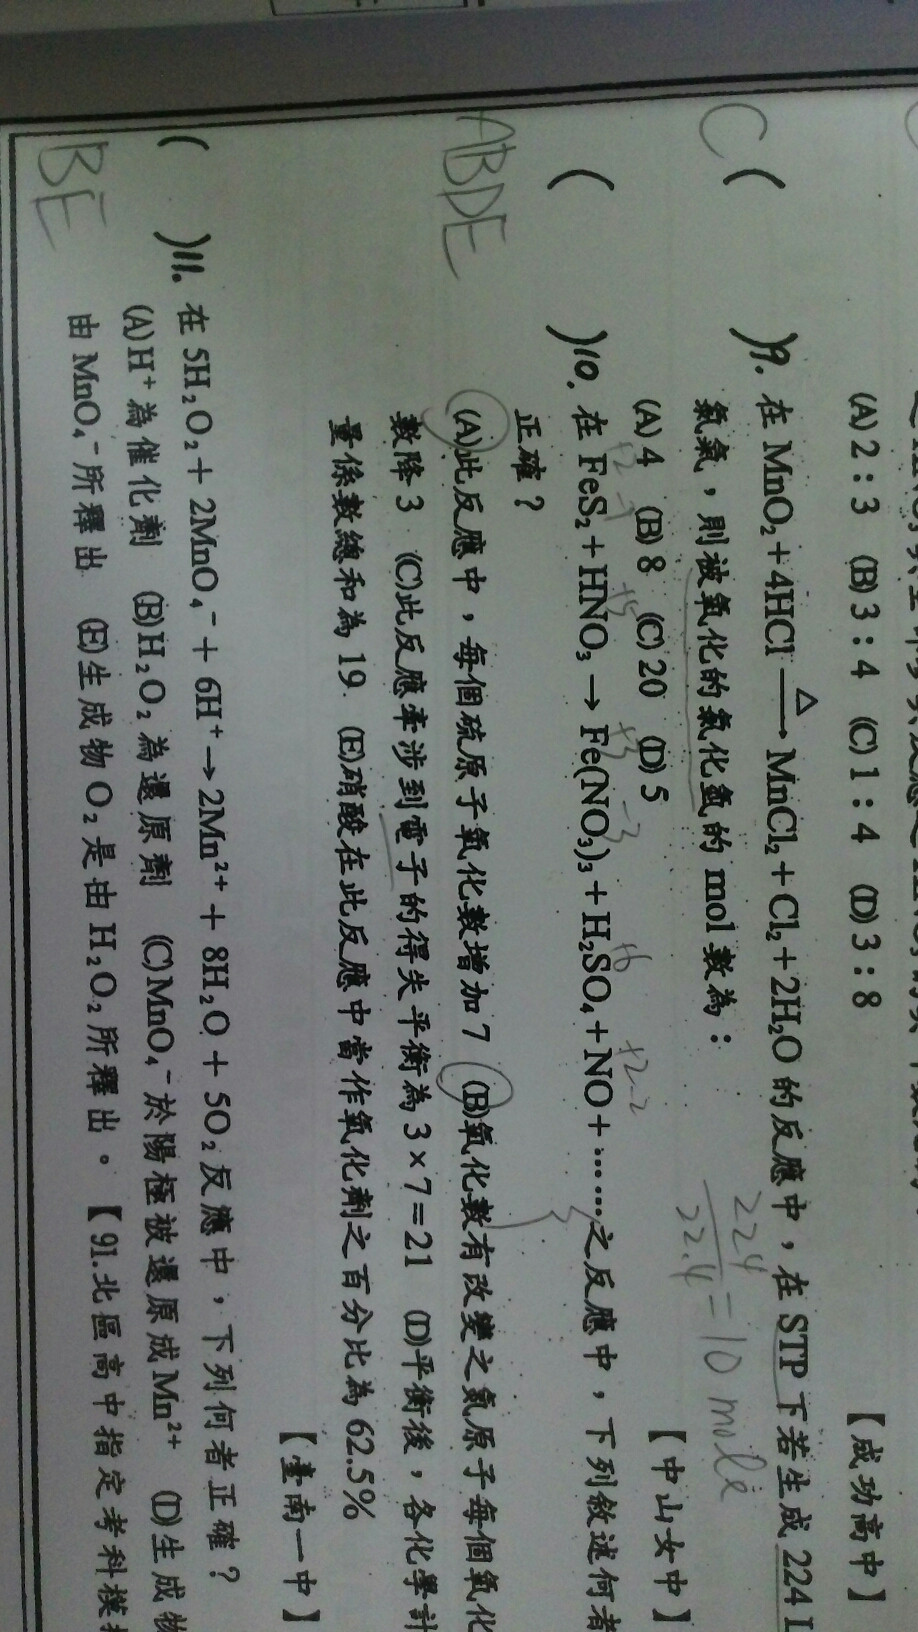 (A) 2：3 (B) 3：4 (C) 1：4 (D) 3：8
【成功高中】
C ( )9. 在 MnO₂＋4HCl —△→ MnCl₂＋Cl₂＋2H₂O 的反應中，在 STP 下若生成 224 L
氯氣，則被氧化的氯化氫的 mol 數為：
224
22.4 = 10 mole
(A) 4 (B) 8 (C) 20 (D) 5
【中山女中】
ABDE ( )10. 在 FeS₂＋HNO₃ → Fe(NO₃)₃＋H₂SO₄＋NO＋……之反應中，下列敘述何者
+2 -1 +5 +3 -3 +6 +2-2
正確？
(A)此反應中，每個硫原子氧化數增加 7 (B)氧化數有改變之氮原子每個氧化
數降 3 (C)此反應牽涉到電子的得失平衡為 3×7=21 (D)平衡後，各化學計
量係數總和為 19 (E)硝酸在此反應中當作氧化劑之百分比為 62.5%
【臺南一中】
BE ( )11. 在 5H₂O₂＋2MnO₄⁻＋6H⁺→2Mn²⁺＋8H₂O＋5O₂ 反應中，下列何者正確？
(A)H⁺為催化劑 (B)H₂O₂為還原劑 (C)MnO₄⁻於陽極被還原成Mn²⁺ (D)生成物
由 MnO₄⁻所釋出 (E)生成物O₂是由H₂O₂所釋出。【91.北區高中指定考科模